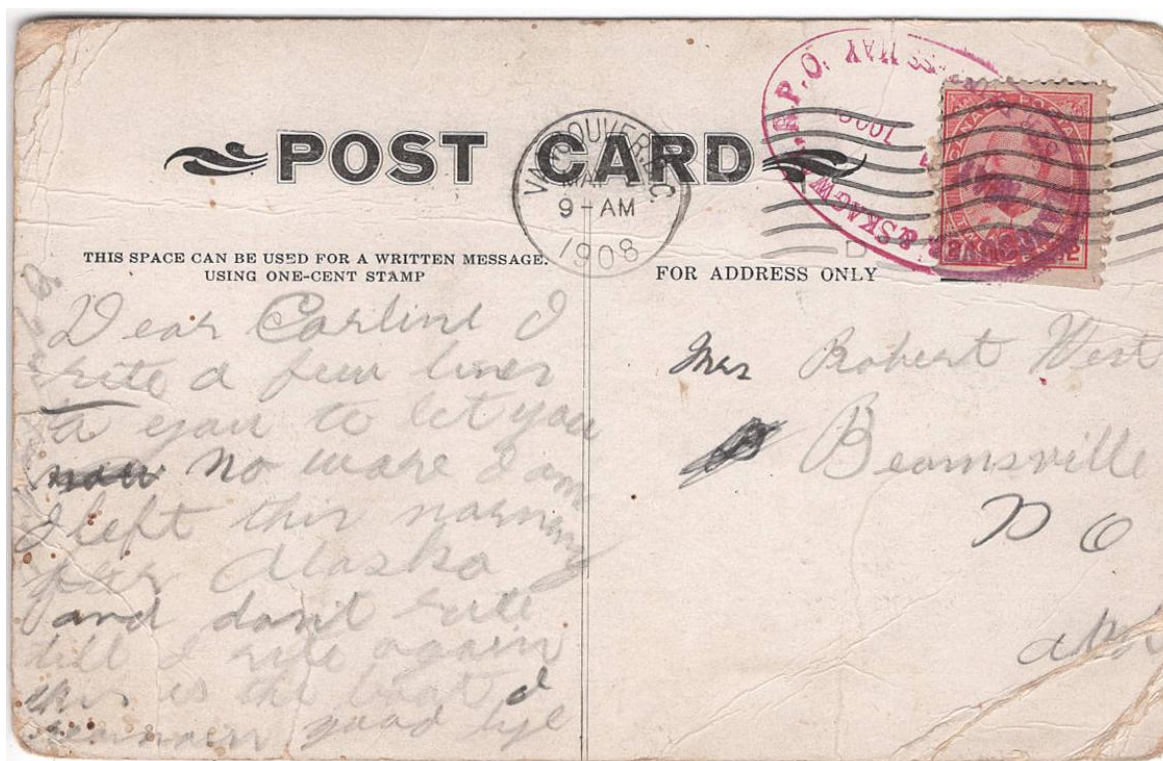 POST CARD
VANCOUVER, B.C.
MAY 2
9-AM
1908
P.O. MAY
& SKAGW
THIS SPACE CAN BE USED FOR A WRITTEN MESSAGE.
USING ONE-CENT STAMP
FOR ADDRESS ONLY
Dear Carline I
rite a few lines
to you to let you
no ware I am
I left this morning
for Alaska
and dont rite
till I rite again
this is the boat I
good bye
Mrs Robert West
Beamsville
P O